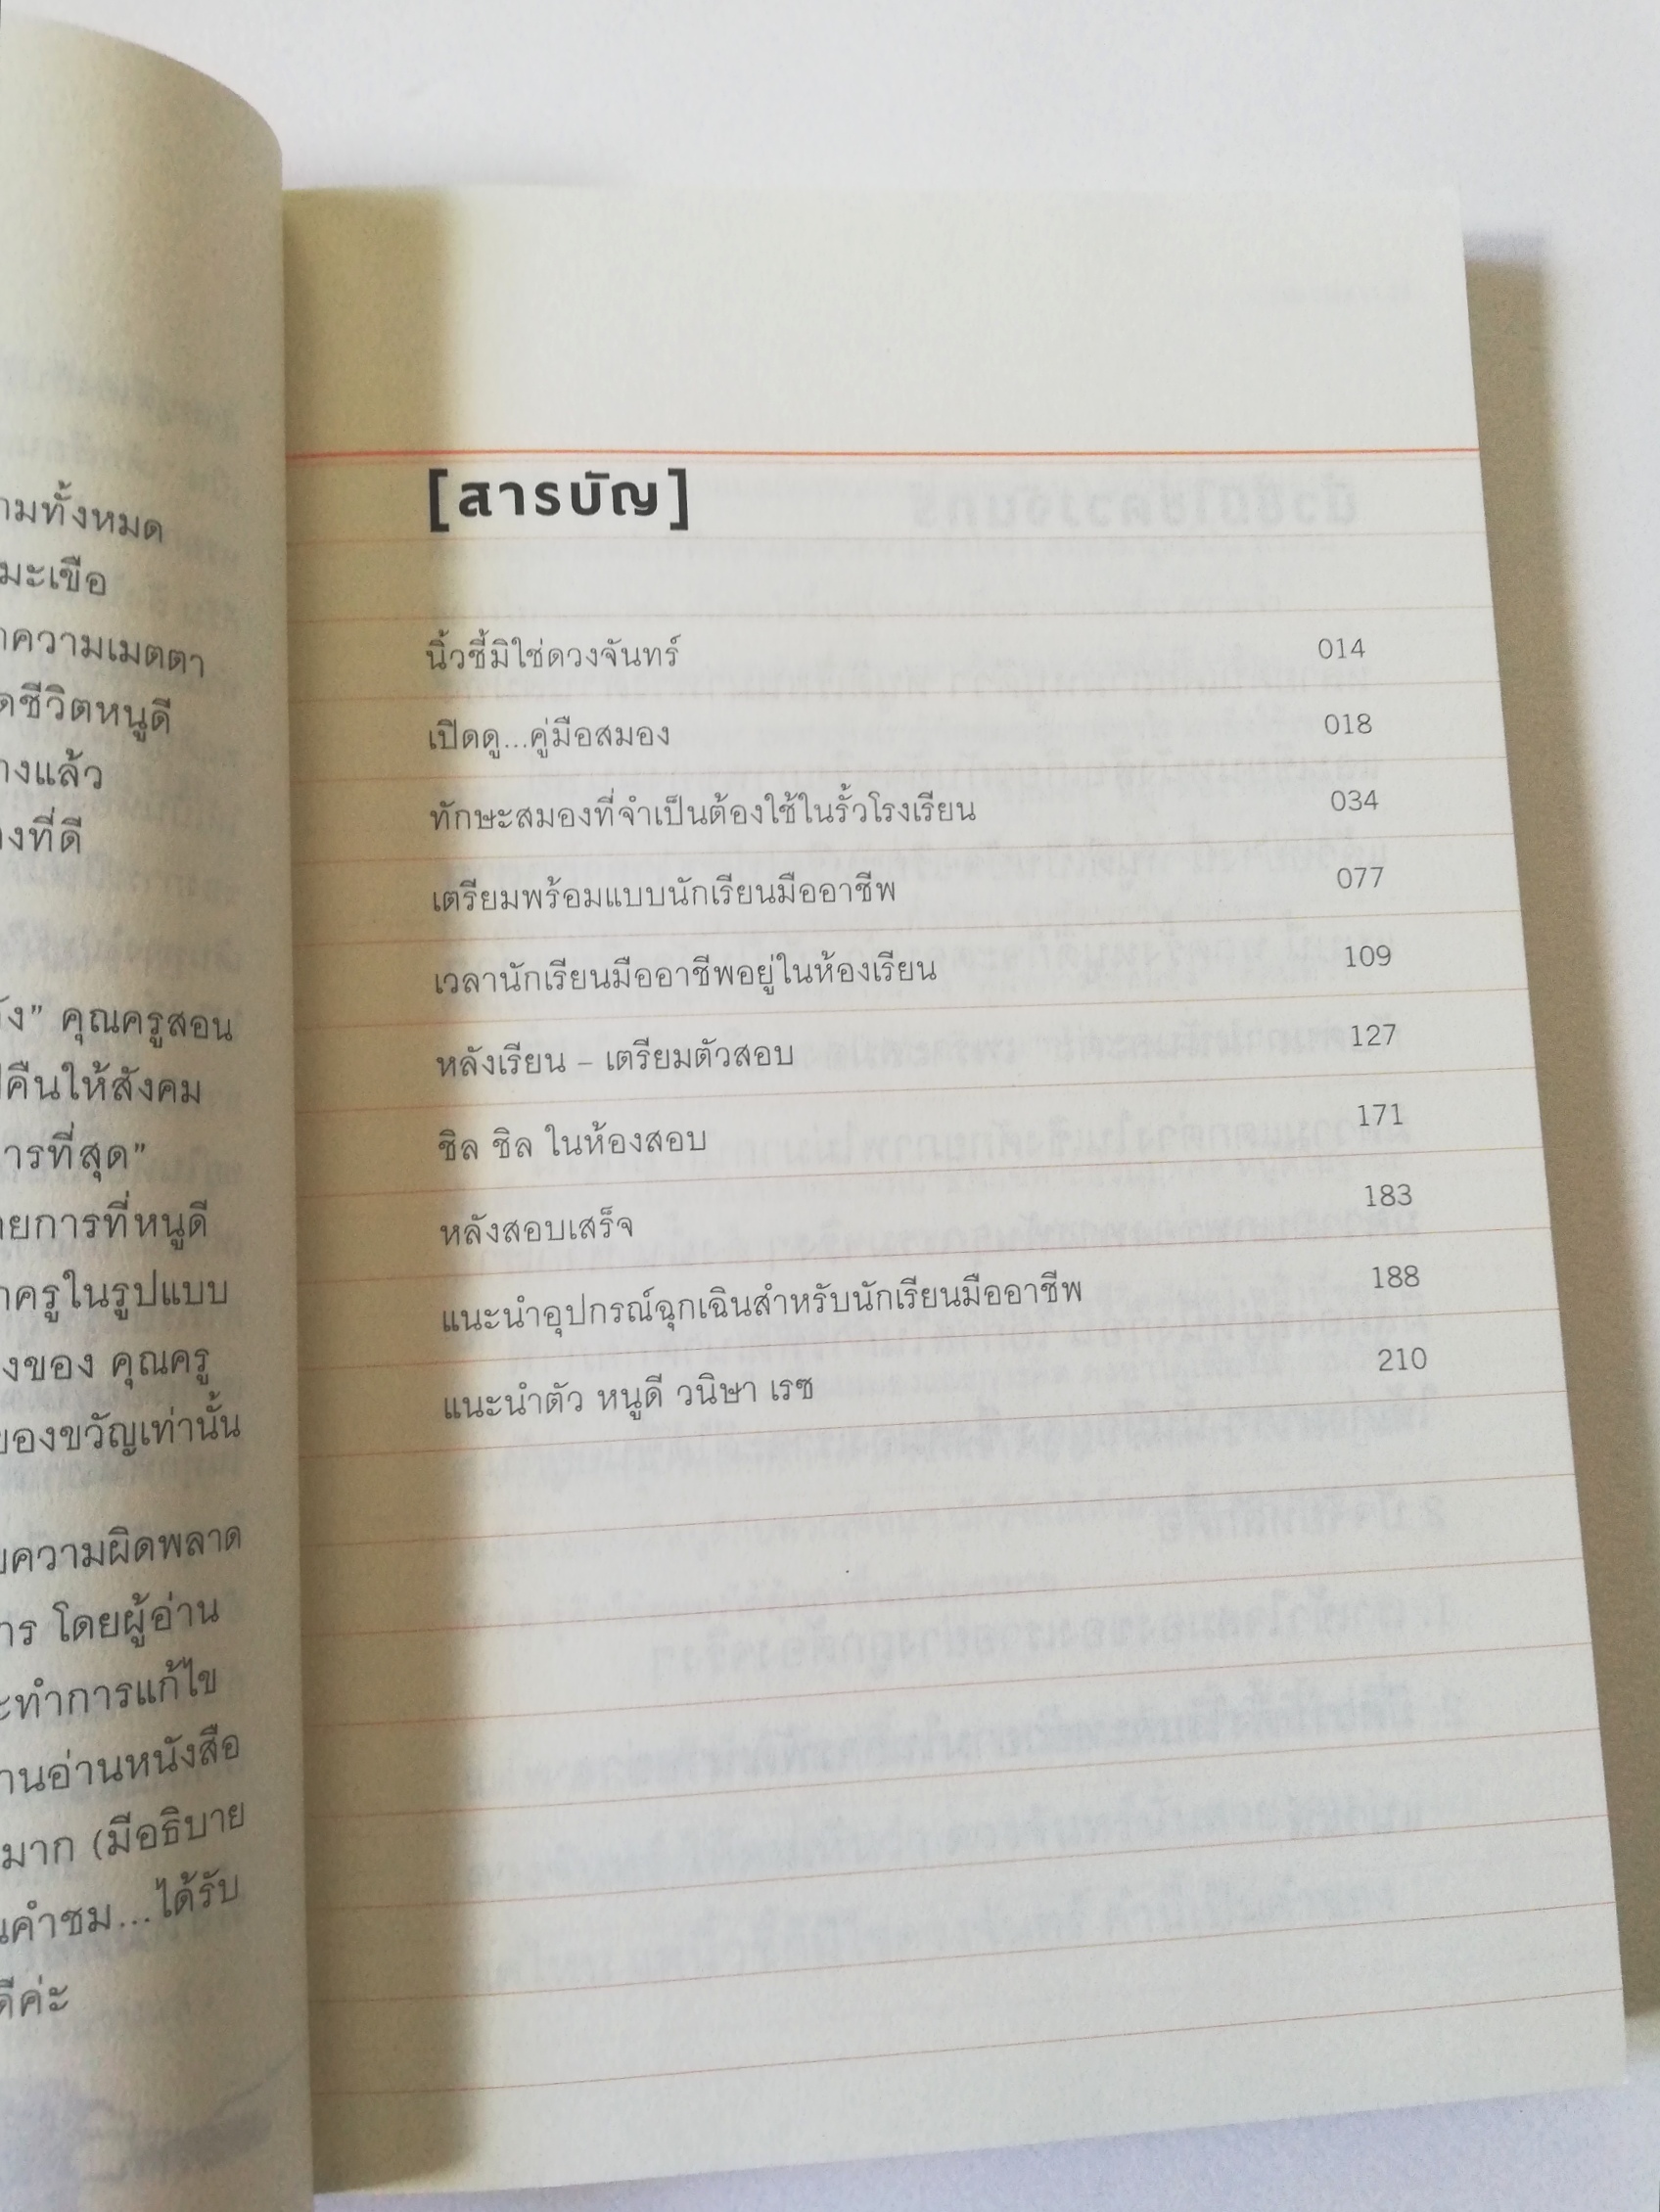 ามทั้งหมด
มะเขือ
าความเมตตา
ดชีวิตหนูดี
างแล้ว
งที่ดี
ัง” คุณครูสอน
คืนให้สังคม
ารที่สุด”
ายการที่หนูดี
าครูในรูปแบบ
งของ คุณครู
ของขวัญเท่านั้น
ความผิดพลาด
าร โดยผู้อ่าน
ะทำการแก้ไข
านอ่านหนังสือ
มาก (มีอธิบาย
คำชม...ได้รับ
ดีค่ะ
[สารบัญ]
นิ้วชี้มิใช่ดวงจันทร์ 014
เปิดดู...คู่มือสมอง 018
ทักษะสมองที่จำเป็นต้องใช้ในรั้วโรงเรียน 034
เตรียมพร้อมแบบนักเรียนมืออาชีพ 077
เวลานักเรียนมืออาชีพอยู่ในห้องเรียน 109
หลังเรียน – เตรียมตัวสอบ 127
ชิล ชิล ในห้องสอบ 171
หลังสอบเสร็จ 183
แนะนำอุปกรณ์ฉุกเฉินสำหรับนักเรียนมืออาชีพ 188
แนะนำตัว หนูดี วนิษา เรซ 210